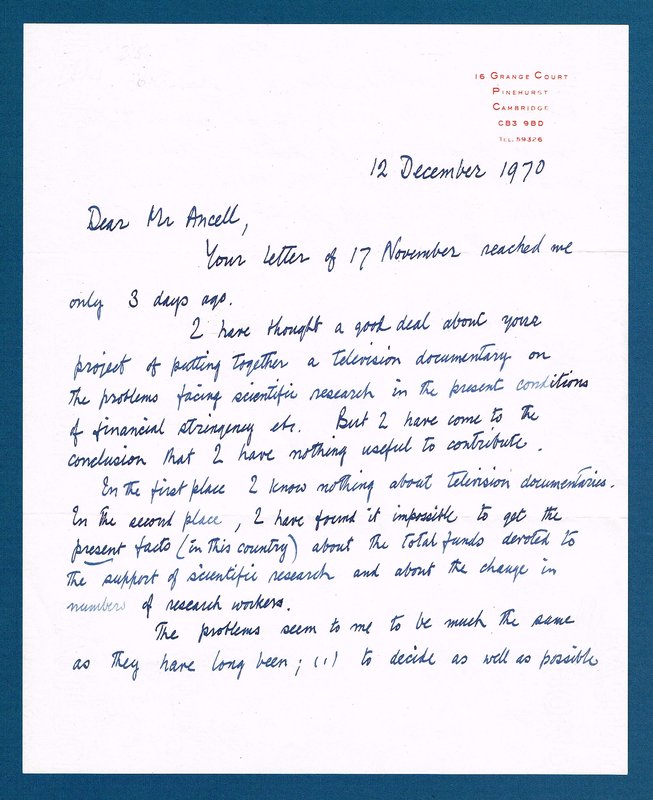 16 GRANGE COURT
PINEHURST
CAMBRIDGE
CB3 9BD
TEL. 59326
12 December 1970
Dear Mr Ancell,
Your letter of 17 November reached me
only 3 days ago.
I have thought a good deal about your
project of putting together a television documentary on
the problems facing scientific research in the present conditions
of financial stringency etc. But I have come to the
conclusion that I have nothing useful to contribute.
In the first place I know nothing about television documentaries.
In the second place, I have found it impossible to get the
present facts (in this country) about the total funds devoted to
the support of scientific research and about the change in
numbers of research workers.
The problems seem to me to be much the same
as they have long been; (1) to decide as well as possible